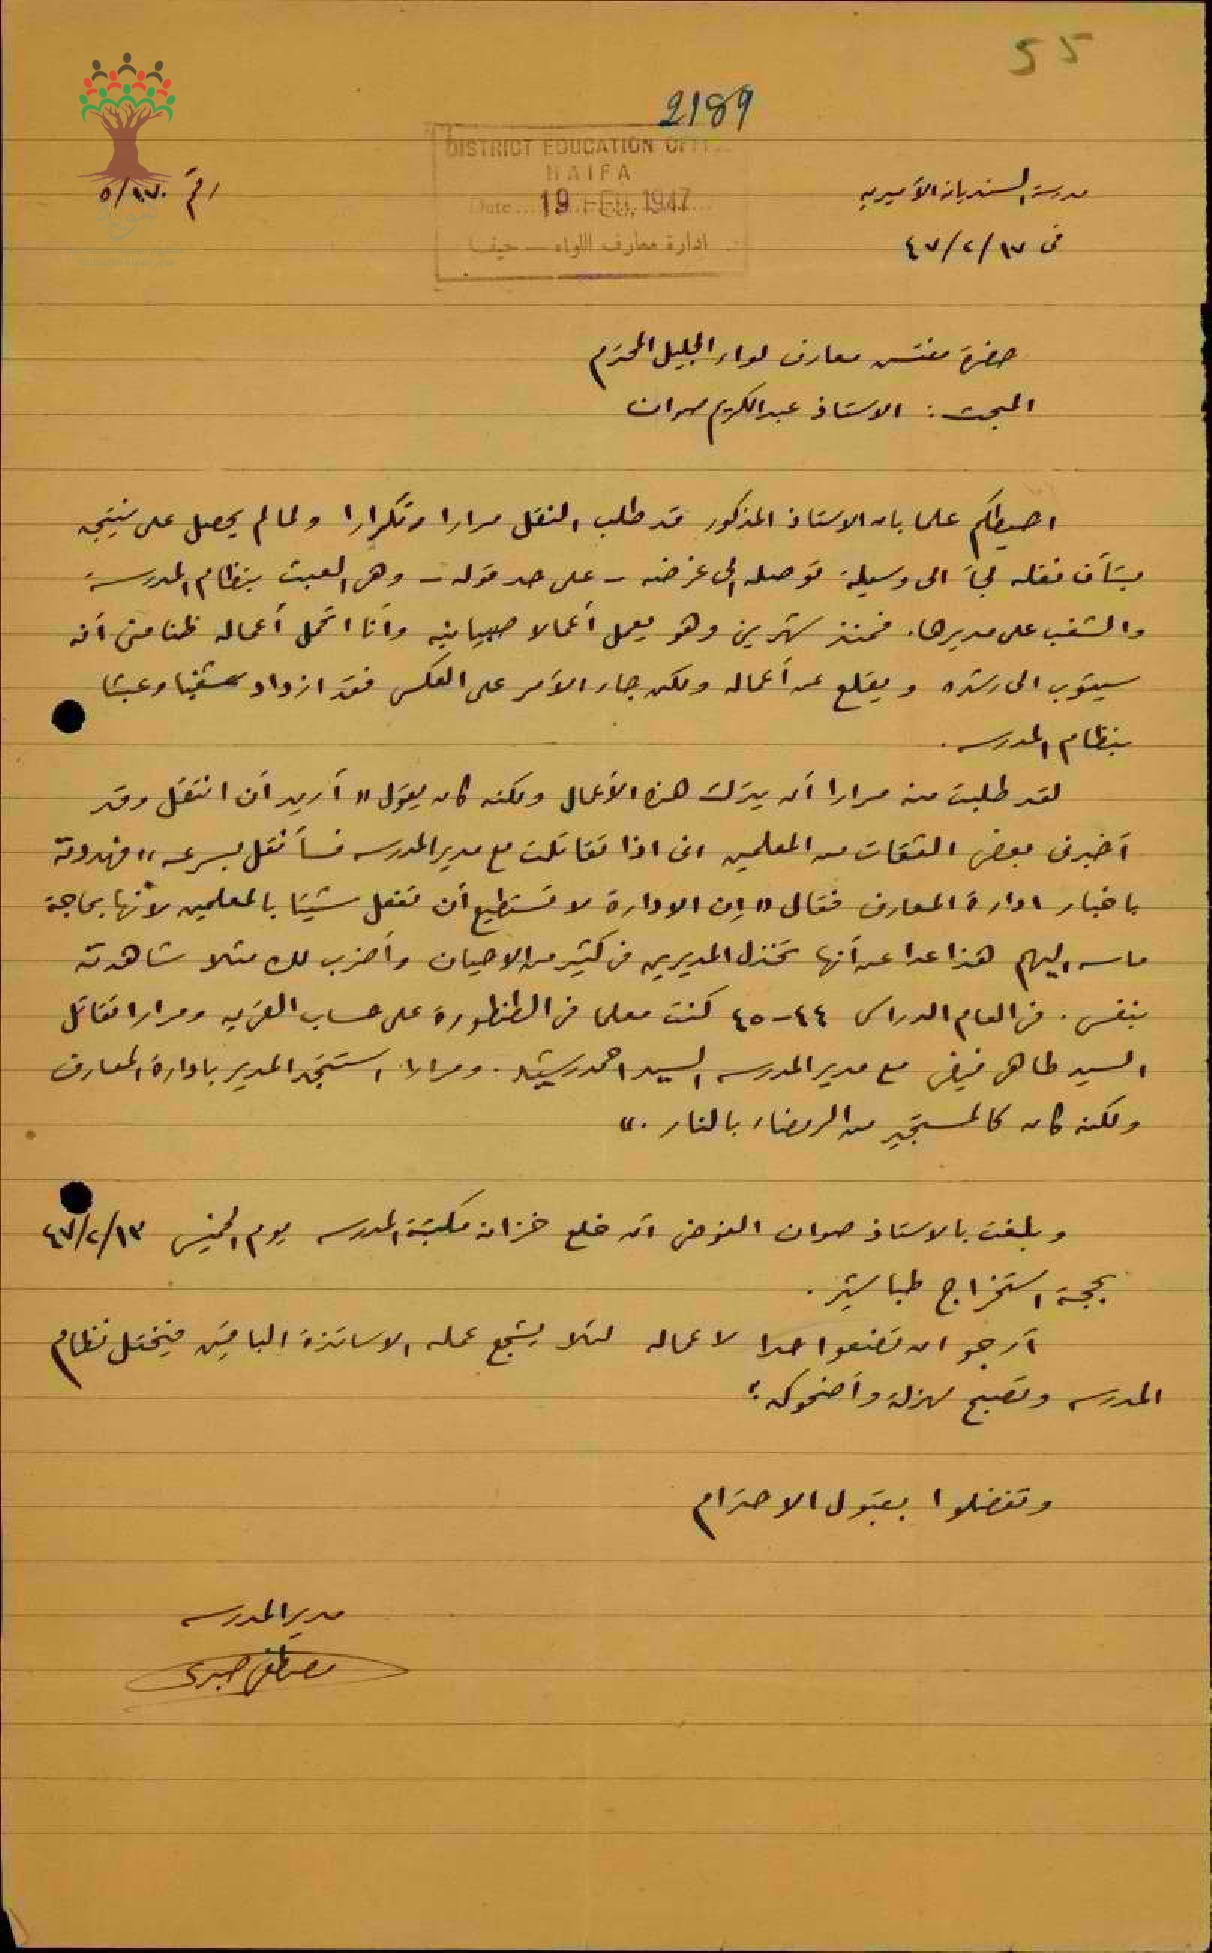 55
2189
DISTRICT EDUCATION OFFI
HAIFA
Date 19 FEB. 1947
ادارة معارف اللواء — حيفا
مدرسة السنديانة الأميريه
رقم ٥/١٧٠
في ١٧/٢/٤٧
حضرة مفتش معارف لواء الجليل المحترم
المبحث : الاستاذ عبدالكريم صوان
احيطكم علما بان الاستاذ المذكور قد طلب النقل مرارا وتكرارا ولما لم يحصل على نتيجه
بشأن نقله لجأ الى وسيلة توصله الى غرضه - على حد قوله - وهي العبث بنظام المدرسة
والشغب على مديرها. فمنذ شهرين وهو يعمل أعمالا صبيانيه وأنا اتحمل أعماله ظنا مني أنه
سيتوب الى رشده ويقلع عن أعماله ولكن جاء الأمر على العكس فقد ازداد شغبا وعبثا
بنظام المدرسه .
لقد طلبت منه مرارا أن يترك هذه الأعمال ولكنه كان يقول " أريد أن انتقل وقد
أخبرني بعض الثقات من المعلمين اني اذا تقاتلت مع مدير المدرسه فسأنقل بسرعه " فهددته
باخبار ادارة المعارف فقال " إن الادارة لا تستطيع أن تفعل شيئا بالمعلمين لأنها بحاجة
ماسه اليهم هذا عدا عن أنها تخذل المديرين في كثير من الاحيان وأضرب لك مثلا شاهدته
بنفسي . في العام الدراسي ٤٤-٤٥ كنت معلما في الطنطورة على حساب القريه ومرارا تقاتل
السيد طاهر فيضي مع مدير المدرسه السيد احمد رشيد . ومرارا استنجد المدير بادارة المعارف
ولكنه كان كالمستجير من الرمضاء بالنار . "
وبلغت بالاستاذ صوان الفوضى انه خلع خزانة مكتبة المدرسه يوم الخميس ١٣/٢/٤٧
بحجة استخراج طباشير .
أرجو ان تضعوا حدا لاعماله لئلا يشجع عمله الاساتذة الباقين فيختل نظام
المدرسه وتصبح مهزلة وأضحوكه ؛
وتفضلوا بقبول الاحترام
مدير المدرسه
مصطفى صبري